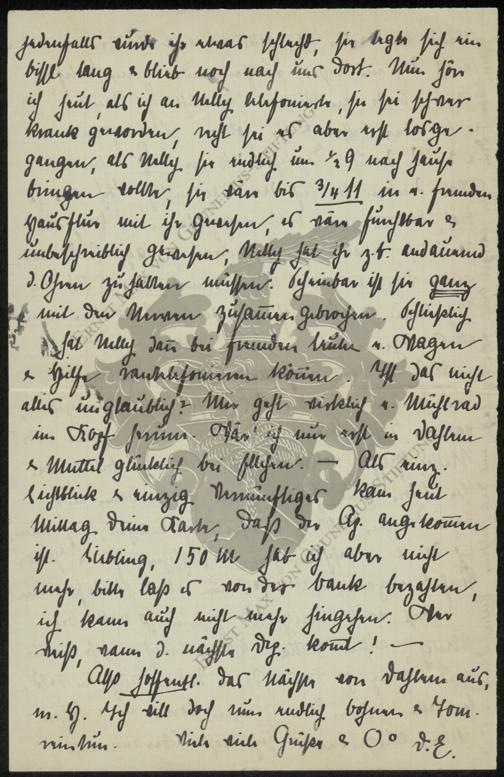 jedenfalls wurde ihr etwas schlecht, sie legte sich ein
bissl lang & blieb noch nach uns dort. Nun hör
ich heut, als ich an Nelly telefonierte, sie sei schwer
krank geworden, recht sei es aber erst losge-
gangen, als Nelly sie endlich um ½ 9 nach Hause
bringen wollte, sie wär bis 3/4 11 in e. fremden
Hausflur mit ihr gewesen, es wär furchtbar &
unbeschreiblich gewesen, Nelly hat ihr z.T. andauernd
d. Ohren zuhalten müssen. Scheinbar ist sie ganz
mit den Nerven zusammengebrochen. Schließlich
hat Nelly dann bei fremden Leuten e. Wagen
& Hilfe telefonieren können. Ist das nicht
alles unglaublich? Mir geht wirklich e. Mühlrad
im Kopf herum. Wär ich nur erst in Dahlem
& Mutti glücklich bei . — Als einz.
Lichtblick & einzig Vernünftiges kam heut
Mittag Deine Karte, daß der angekommen
ist. Liebling, 150 M hab ich aber nicht
mehr, bitte laß es von der Bank bezahlen,
ich kann auch nicht mehr hingehen. Wer
weiß, wann d. nächste kommt! —
Also hoffentl. das Nächste von Dahlem aus,
m. H. Ich will doch nun endlich
Viele viele Grüße & d. E.
ERNST MAX VON GRUNELIUS-STIFTUNG
ERNST MAX VON GRUNELIUS-STIFTUNG